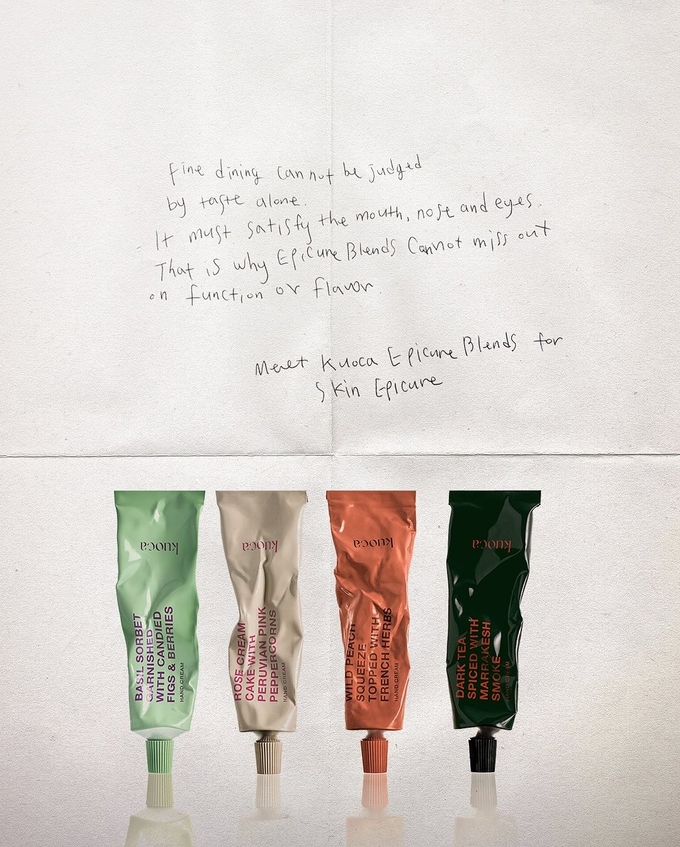 Fine dining cannot be judged
by taste alone.
It must satisfy the mouth, nose and eyes.
That is why Epicure Blends Cannot miss out
on function or flavor.
Meet Kuoca Epicure Blends for
Skin Epicure
kuoca
BASIL SORBET
GARNISHED
WITH CANDIED
FIGS & BERRIES
HAND CREAM
kuoca
ROSE CREAM
CAKE WITH
PERUVIAN PINK
PEPPERCORNS
HAND CREAM
kuoca
WILD PEACH
SQUEEZE
TOPPED WITH
FRENCH HERBS
HAND CREAM
kuoca
DARK TEA
SPICED WITH
MARRAKESH
SMOKE
HAND CREAM